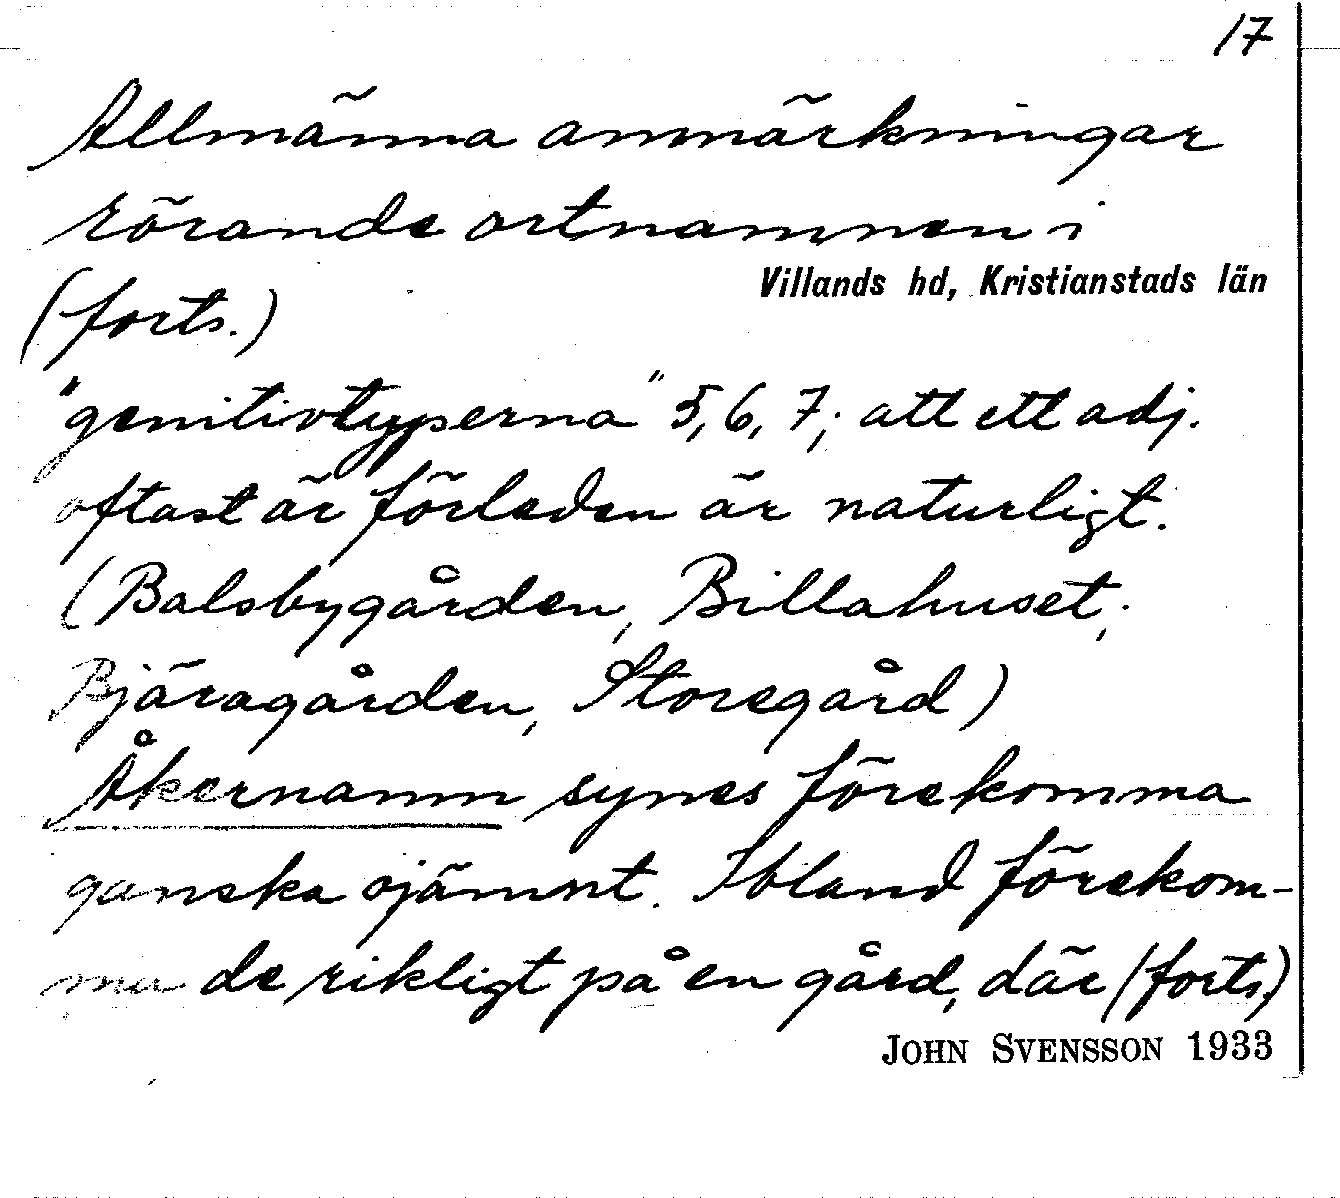 17
Allmänna anmärkningar
rörande ortnamnen i
Villands hd, Kristianstads län
(forts.)
"genitivtyperna" 5, 6, 7; att ett adj.
oftast är förleden är naturligt.
(Balsbygården, Billahuset,
Bjäragården, Storegård)
Åkernamn synes förekomma
ganska ojämnt. Ibland förekom-
ma de rikligt på en gård, där (forts.)
JOHN SVENSSON 1933